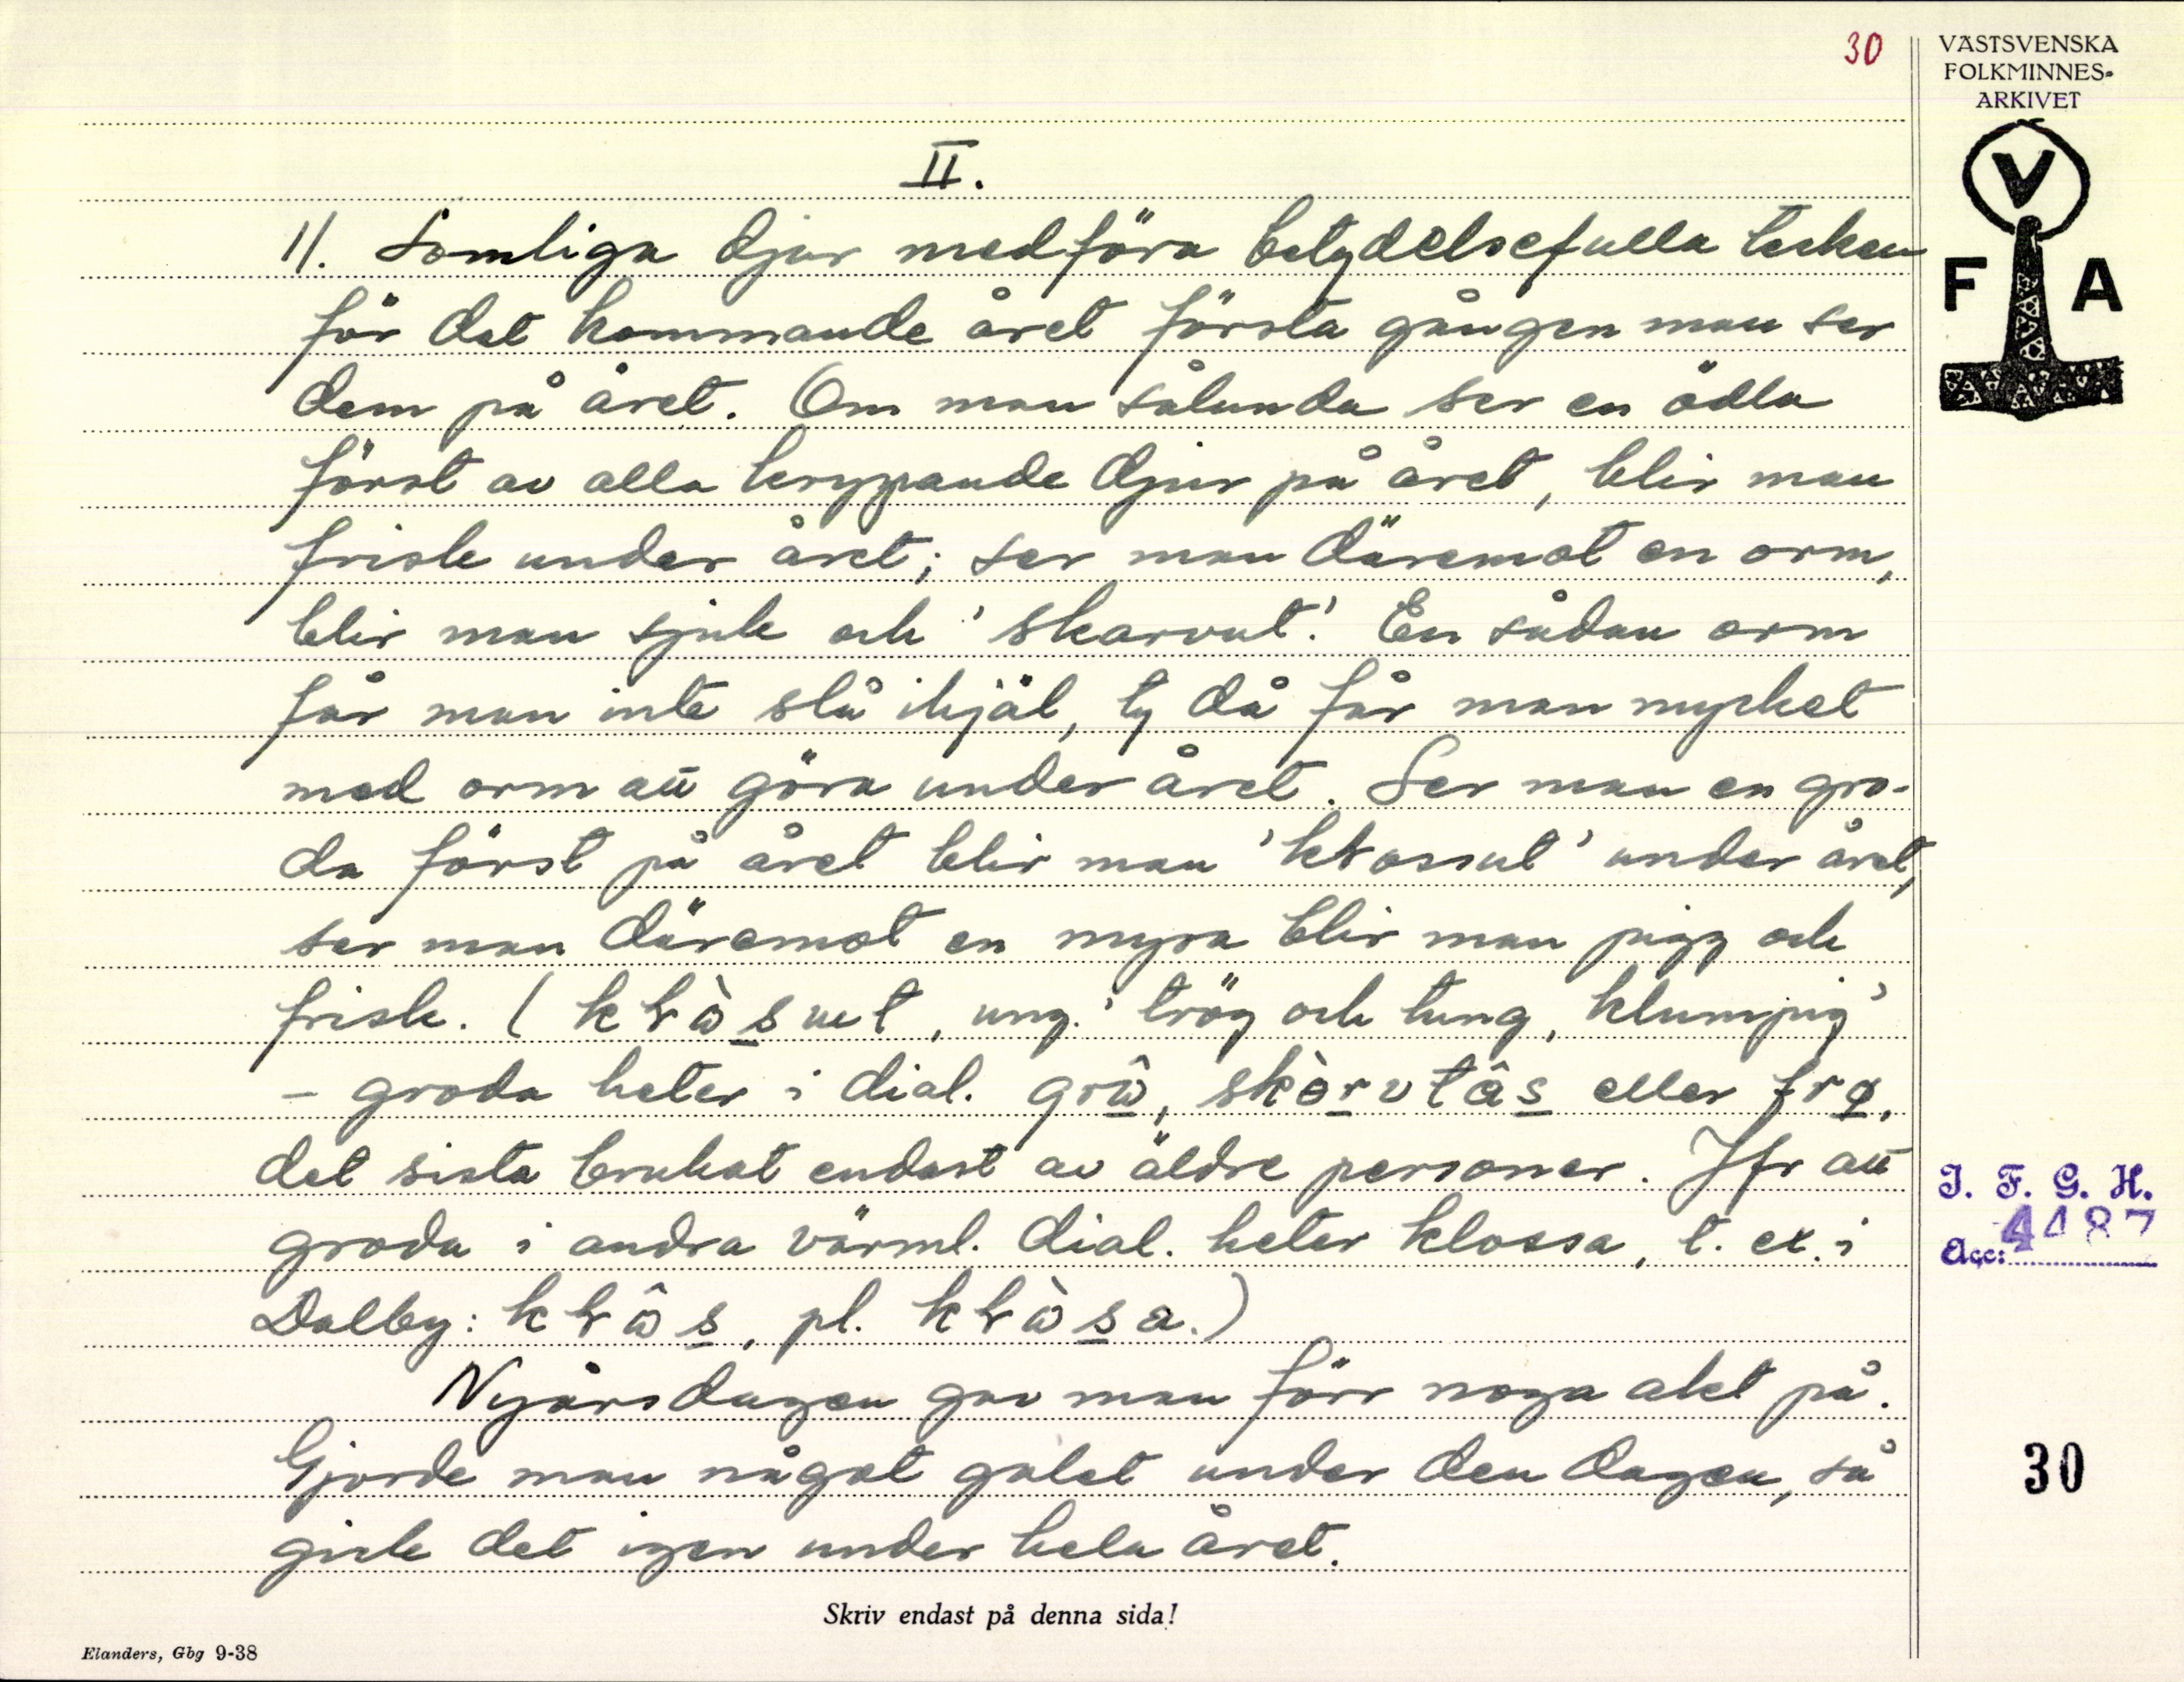 30
VÄSTSVENSKA
FOLKMINNES-
ARKIVET
V
F A
II.
1/. Somliga djur medföra betydelsefulla tecken
för det kommande året första gången man ser
dem på året. Om man sålunda ser en ödla
först av alla krypande djur på året, blir man
frisk under året; ser man däremot en orm,
blir man sjuk och 'skarvut'. En sådan orm
får man inte slå ihjäl, ty då får man mycket
med orm att göra under året. Ser man en gro-
da först på året blir man 'kƚossut' under året,
ser man däremot en myra blir man pigg och
frisk. (kƚὼs̲ut, ung. 'trög och tung, klumpig'
– groda heter i dial. grω̂, skàr̲vtâs̲ eller frø̲,
det sista brukat endast av äldre personer. Jfr att
groda i andra värml. dial. heter klossa, t. ex. i
Dalby: kƚω̂s̲, pl. kƚὼs̲a.)
Nyårsdagen gav man förr noga akt på.
Gjorde man något galet under den dagen, så
gick det igen under hela året.
I. F. G. H.
Acc: 4487
30
Skriv endast på denna sida!
Elanders, Gbg 9-38